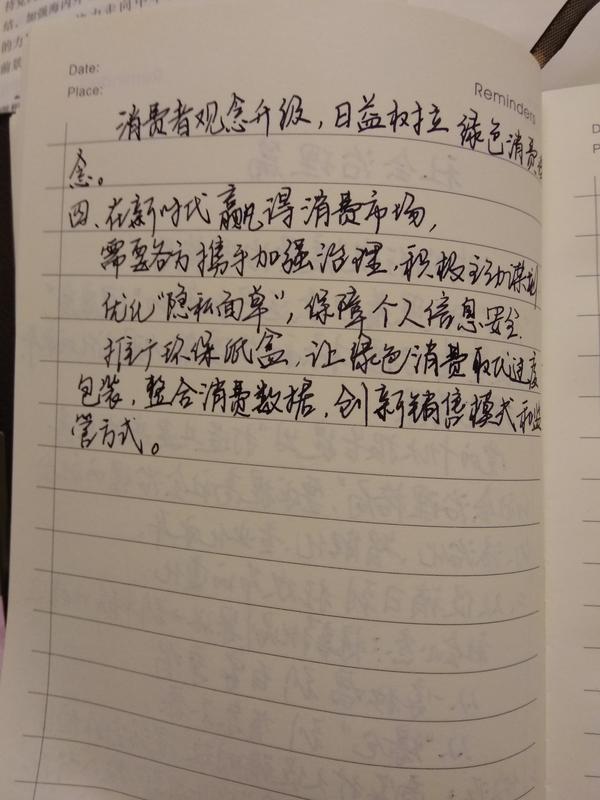 结、加强海内外
的力
前景
Date:
Place:
Reminders
消费者观念升级，日益权拉 绿色消费
念。
四、在新时代赢得消费市场，
需要各方携手加强治理，积极主动谋划
优化“隐私面单”，保障个人信息安全.
推广环保纸盒，让绿色消费取代过度
包装，整合消费数据，创新销售模式和监
管方式。